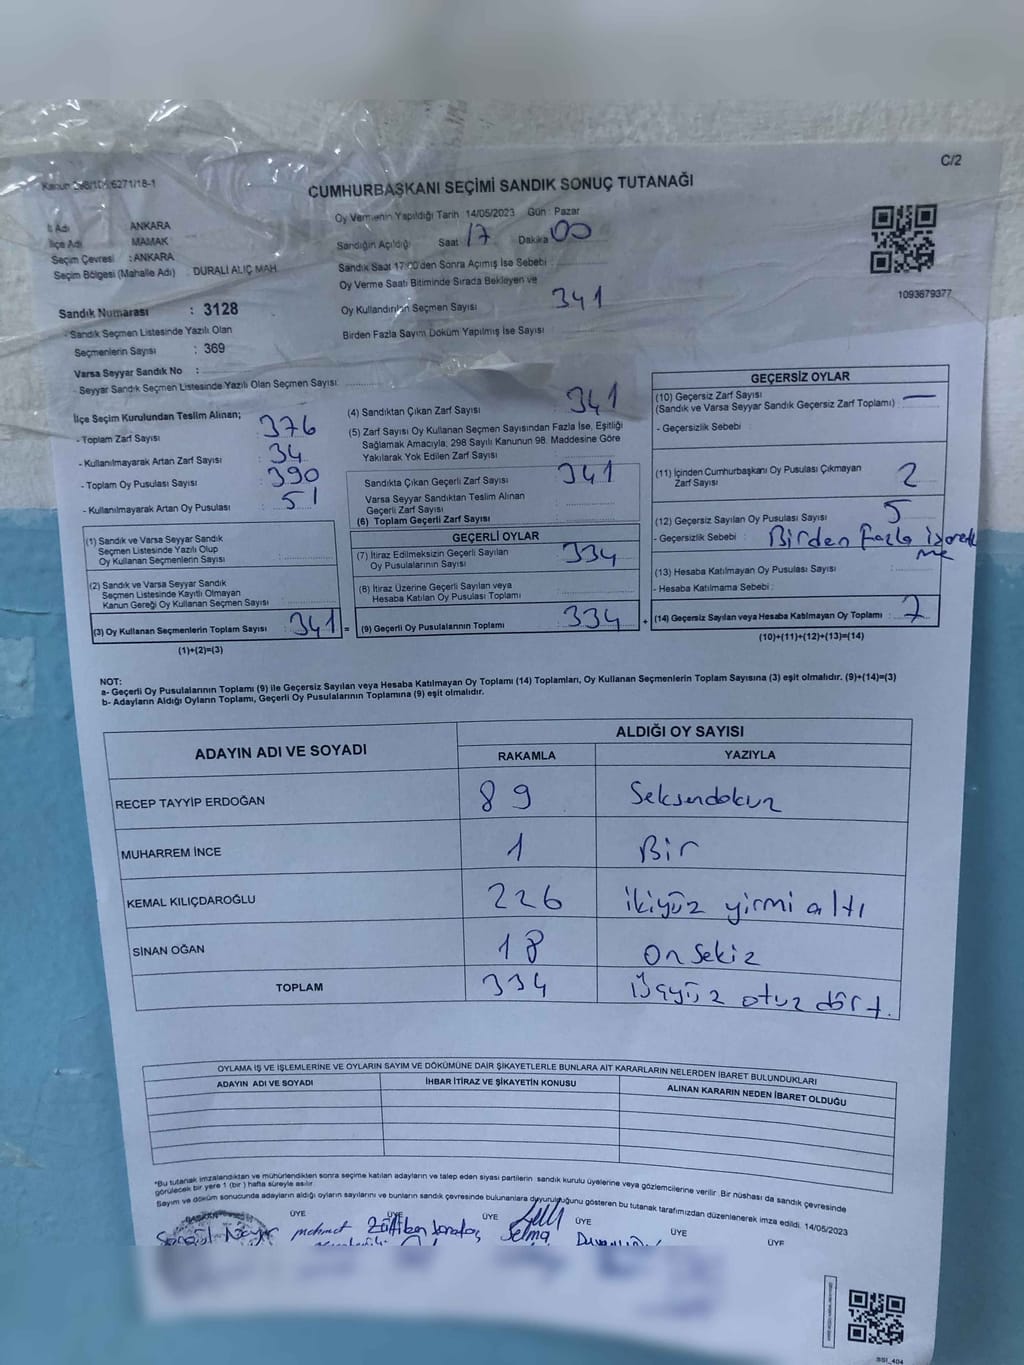 Kanun 298/105;6271/18-1
C/2
CUMHURBAŞKANI SEÇİMİ SANDIK SONUÇ TUTANAĞI
İl Adı ANKARA
İlçe Adı MAMAK
Seçim Çevresi : ANKARA
Seçim Bölgesi (Mahalle Adı) : DURALİ ALIÇ MAH.
Oy Vermenin Yapıldığı Tarih 14/05/2023 Gün : Pazar
Sandığın Açıldığı Saat 17 Dakika 00
Sandık Saat 17:00'den Sonra Açımış İse Sebebi :
Oy Verme Saati Bitiminde Sırada Bekleyen ve
Oy Kullandırılan Seçmen Sayısı 341
Birden Fazla Sayım Döküm Yapılmış İse Sayısı :
1093679377
Sandık Numarası : 3128
- Sandık Seçmen Listesinde Yazılı Olan
Seçmenlerin Sayısı : 369
Varsa Seyyar Sandık No :
- Seyyar Sandık Seçmen Listesinde Yazılı Olan Seçmen Sayısı:
İlçe Seçim Kurulundan Teslim Alınan;
- Toplam Zarf Sayısı 376
- Kullanılmayarak Artan Zarf Sayısı : 34
- Toplam Oy Pusulası Sayısı : 390
- Kullanılmayarak Artan Oy Pusulası : 51
(1) Sandık ve Varsa Seyyar Sandık
Seçmen Listesinde Yazılı Olup
Oy Kullanan Seçmenlerin Sayısı :
(2) Sandık ve Varsa Seyyar Sandık
Seçmen Listesinde Kayıtlı Olmayan
Kanun Gereği Oy Kullanan Seçmen Sayısı :
(3) Oy Kullanan Seçmenlerin Toplam Sayısı : 341 =
(1)+(2)=(3)
(4) Sandıktan Çıkan Zarf Sayısı : 341
(5) Zarf Sayısı Oy Kullanan Seçmen Sayısından Fazla İse, Eşitliği
Sağlamak Amacıyla; 298 Sayılı Kanunun 98. Maddesine Göre
Yakılarak Yok Edilen Zarf Sayısı :
Sandıkta Çıkan Geçerli Zarf Sayısı : 341
Varsa Seyyar Sandıktan Teslim Alınan
Geçerli Zarf Sayısı :
(6) Toplam Geçerli Zarf Sayısı :
GEÇERLİ OYLAR
(7) İtiraz Edilmeksizin Geçerli Sayılan
Oy Pusulalarının Sayısı : 334
(8) İtiraz Üzerine Geçerli Sayılan veya
Hesaba Katılan Oy Pusulası Toplamı :
(9) Geçerli Oy Pusulalarının Toplamı : 334 +
GEÇERSİZ OYLAR
(10) Geçersiz Zarf Sayısı
(Sandık ve Varsa Seyyar Sandık Geçersiz Zarf Toplamı) : —
- Geçersizlik Sebebi :
(11) İçinden Cumhurbaşkanı Oy Pusulası Çıkmayan
Zarf Sayısı : 2
(12) Geçersiz Sayılan Oy Pusulası Sayısı : 5
- Geçersizlik Sebebi : Birden fazla işaretle
me
(13) Hesaba Katılmayan Oy Pusulası Sayısı :
- Hesaba Katılmama Sebebi :
(14) Geçersiz Sayılan veya Hesaba Katılmayan Oy Toplamı : 7
(10)+(11)+(12)+(13)=(14)
NOT:
a- Geçerli Oy Pusulalarının Toplamı (9) ile Geçersiz Sayılan veya Hesaba Katılmayan Oy Toplamı (14) Toplamları, Oy Kullanan Seçmenlerin Toplam Sayısına (3) eşit olmalıdır. (9)+(14)=(3)
b- Adayların Aldığı Oyların Toplamı, Geçerli Oy Pusulalarının Toplamına (9) eşit olmalıdır.
ADAYIN ADI VE SOYADI
ALDIĞI OY SAYISI
RAKAMLA YAZIYLA
RECEP TAYYİP ERDOĞAN 89 Seksendokuz
MUHARREM İNCE 1 Bir
KEMAL KILIÇDAROĞLU 226 ikiyüz yirmi altı
SİNAN OĞAN 18 On Sekiz
TOPLAM 334 Üçyüz otuz dört.
OYLAMA İŞ VE İŞLEMLERİNE VE OYLARIN SAYIM VE DÖKÜMÜNE DAİR ŞİKAYETLERLE BUNLARA AİT KARARLARIN NELERDEN İBARET BULUNDUKLARI
ADAYIN ADI VE SOYADI İHBAR İTİRAZ VE ŞİKAYETİN KONUSU ALINAN KARARIN NEDEN İBARET OLDUĞU
*Bu tutanak imzalandıktan ve mühürlendikten sonra seçime katılan adayların ve talep eden siyasi partilerin sandık kurulu üyelerine veya gözlemcilerine verilir. Bir nüshası da sandık çevresinde
görülecek bir yere 1 (bir ) hafta süreyle asılır.
Sayım ve döküm sonucunda adayların aldığı oyların sayılarını ve bunların sandık çevresinde bulunanlara duyurulduğunu gösteren bu tutanak tarafımızdan düzenlenerek imza edildi. 14/05/2023
ÜYE ÜYE ÜYE ÜYE ÜYE ÜYE
mehmet Selma
SSI_404